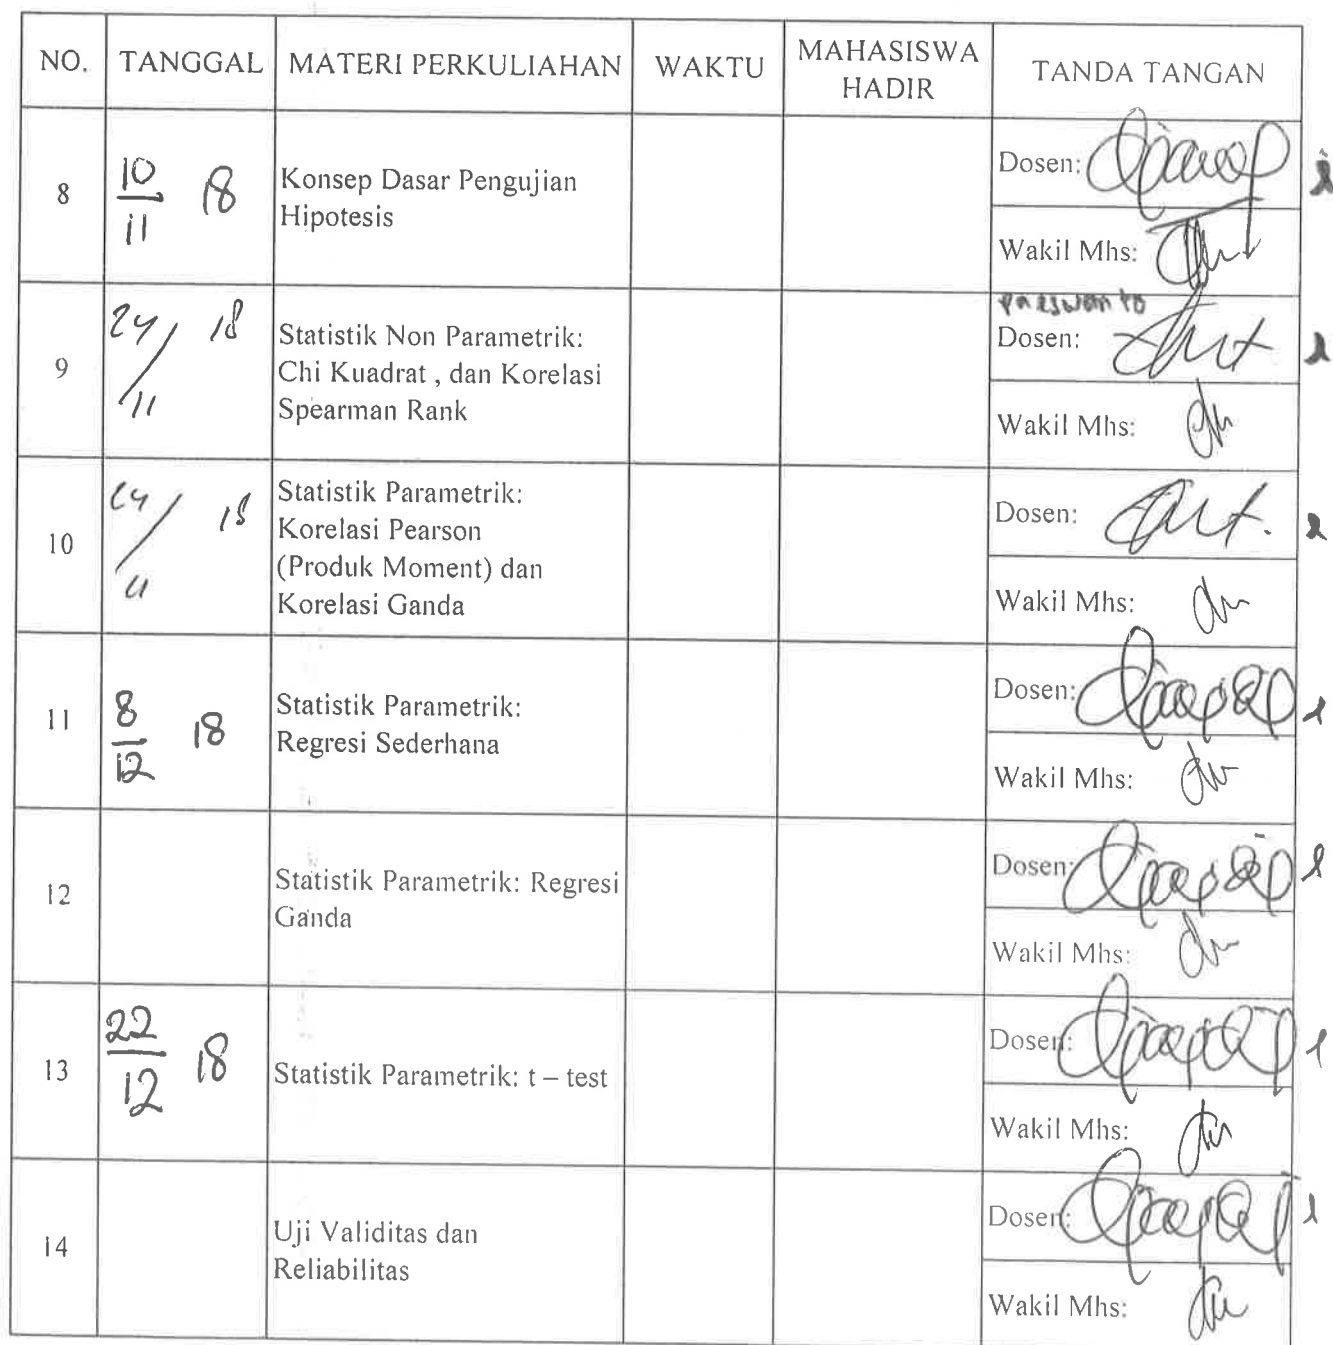 NO. TANGGAL MATERI PERKULIAHAN WAKTU MAHASISWA HADIR TANDA TANGAN
8
10/11 18
Konsep Dasar Pengujian
Hipotesis
Dosen:
Wakil Mhs:
9
24/11 18
Statistik Non Parametrik:
Chi Kuadrat , dan Korelasi
Spearman Rank
Dosen:
Wakil Mhs:
10
24/11 18
Statistik Parametrik:
Korelasi Pearson
(Produk Moment) dan
Korelasi Ganda
Dosen:
Wakil Mhs:
11
8/12 18
Statistik Parametrik:
Regresi Sederhana
Dosen:
Wakil Mhs:
12
Statistik Parametrik: Regresi
Ganda
Dosen:
Wakil Mhs:
13
22/12 18
Statistik Parametrik: t – test
Dosen:
Wakil Mhs:
14
Uji Validitas dan
Reliabilitas
Dosen:
Wakil Mhs: